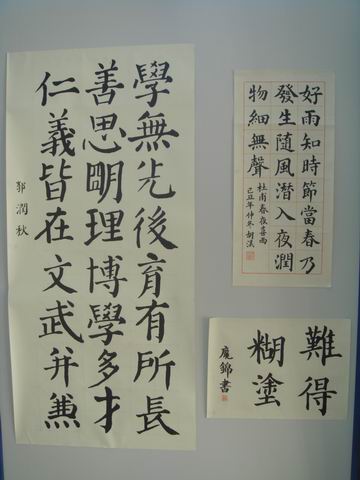 學無先後育有所長
善思明理博學多才
仁義皆在文武并兼
郭潤秋
好雨知時節當春乃
發生隨風潛入夜潤
物細無聲
杜甫春夜喜雨
己丑年仲冬胡
難得
糊塗
錦書